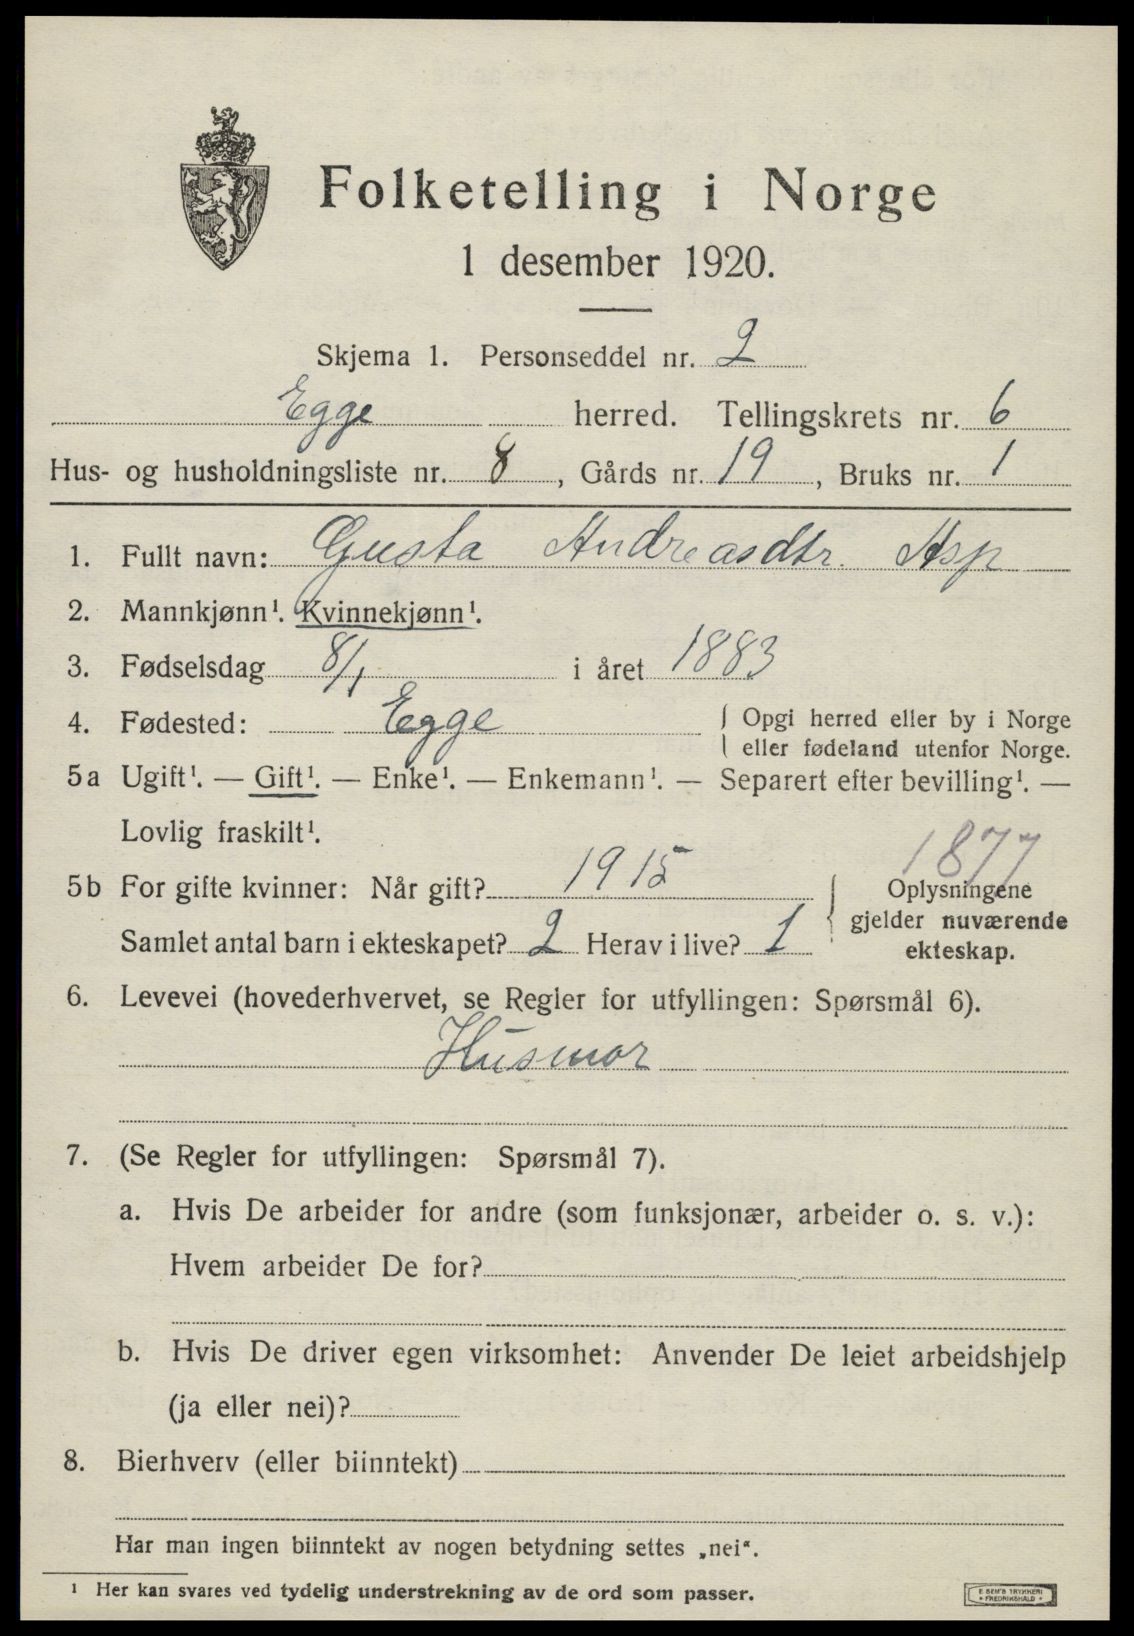 Folketelling i Norge
1 desember 1920.
Skjema 1. Personseddel nr. 2
Egge herred. Tellingskrets nr. 6
Hus- og husholdningsliste nr. 8, Gårds nr. 19, Bruks nr. 1
1. Fullt navn: Gusta Andreasdtr. Asp
2. Mannkjønn¹. Kvinnekjønn¹.
3. Fødselsdag 8/1 i året 1883
4. Fødested: Egge { Opgi herred eller by i Norge
eller fødeland utenfor Norge.
5a Ugift¹. — Gift¹. — Enke¹. — Enkemann¹. — Separert efter bevilling¹. —
Lovlig fraskilt¹.
1877
5b For gifte kvinner: Når gift? 1915
Samlet antal barn i ekteskapet? 2 Herav i live? 1
{ Oplysningene
gjelder nuværende
ekteskap.
6. Levevei (hovederhvervet, se Regler for utfyllingen: Spørsmål 6).
Husmor
7. (Se Regler for utfyllingen: Spørsmål 7).
a. Hvis De arbeider for andre (som funksjonær, arbeider o. s. v.):
Hvem arbeider De for?
b. Hvis De driver egen virksomhet: Anvender De leiet arbeidshjelp
(ja eller nei)?
8. Bierhverv (eller biinntekt)
Har man ingen biinntekt av nogen betydning settes „nei“.
¹ Her kan svares ved tydelig understrekning av de ord som passer.
E. SEM'S TRYKKERI
• FREDRIKSHALD •